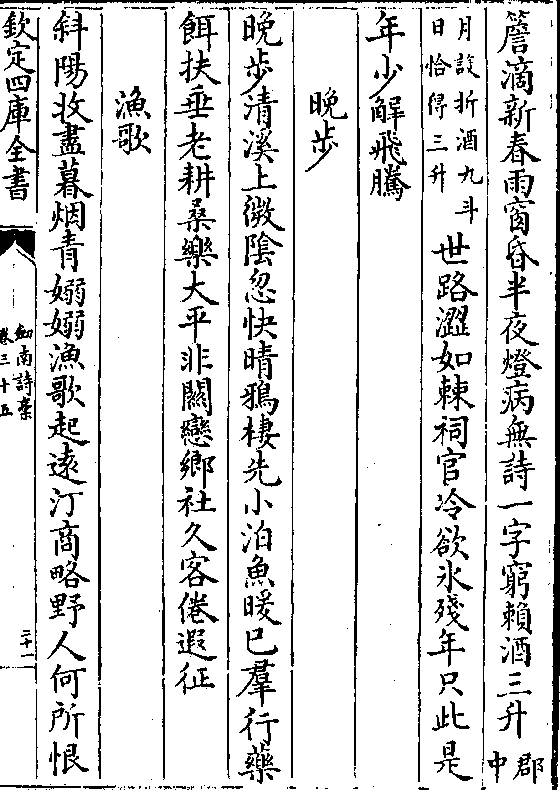 簷滴新春雨窗昏半夜燈病無詩一字窮賴酒三升郡中
月設折酒九斗
日恰得三升
世路澀如棘祠官冷欲氷殘年只此是
年少解飛騰
晚步
晚步清溪上微陰忽快晴鴉棲先小泊魚暖已羣行藥
餌扶垂老耕桑樂太平非闗戀鄉社久客倦遐征
漁歌
斜陽收盡暮烟青嫋嫋漁歌起遠汀商略野人何所恨
欽定四庫全書
劍南詩藁
卷三十五
二十一